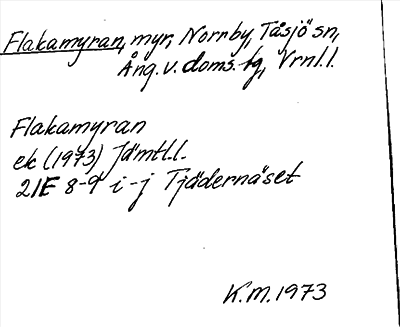 Flakamyran, myr, Norrby, Tåsjö sn,
Ång. v. doms.-sg, Vrnl.l.
Flakamyran
ek (1973) Jämtl.l.
21E 8-9 i-j Tjädernäset
K.M. 1973